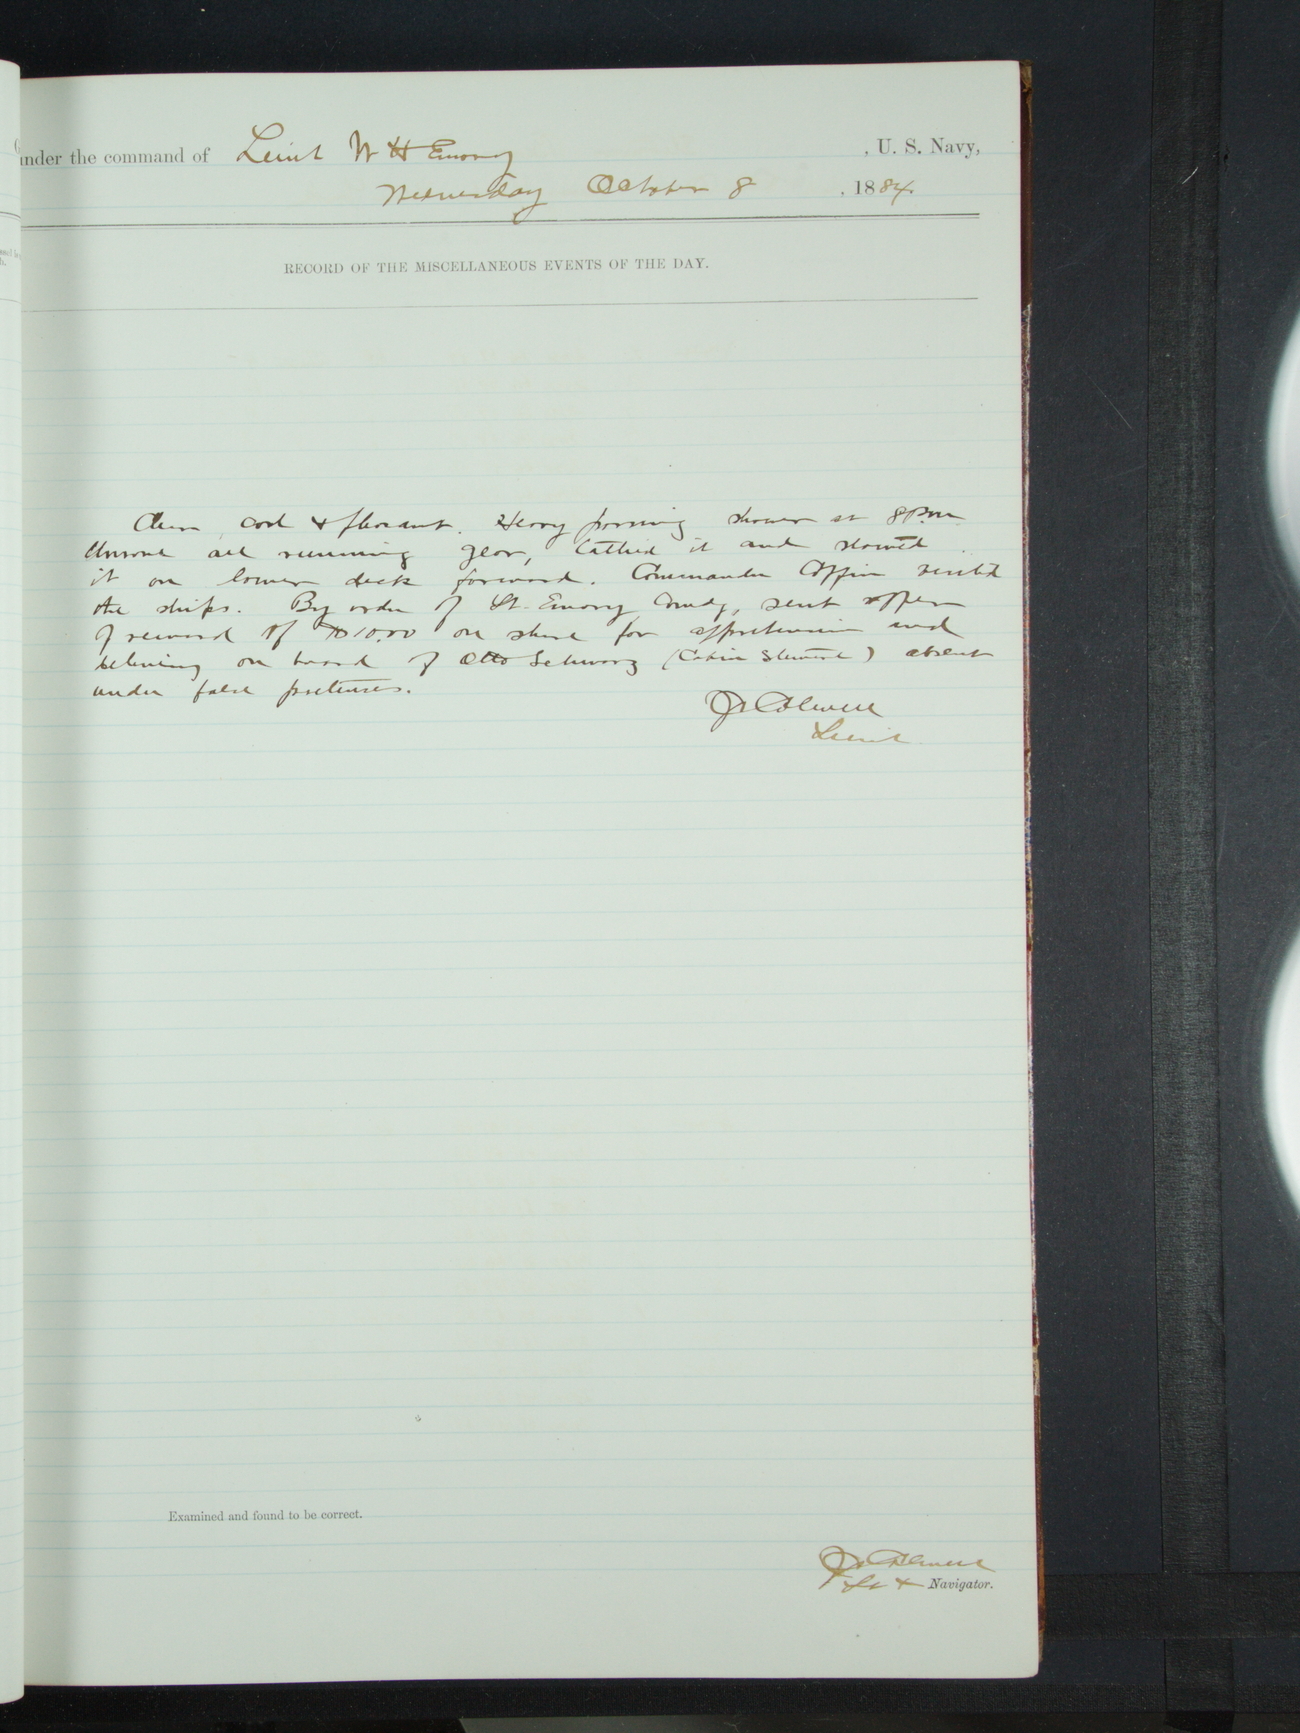 under the command of Lieut W H Emory , U. S. Navy,
Wednesday October 8 , 1884.
RECORD OF THE MISCELLANEOUS EVENTS OF THE DAY.
Clear, cool & pleasant. Heavy passing shower at 8 P.m.
Unrove all running gear, tallied it and stowed
it on lower deck forward. Commander Coffin visited
the ships. By order of Lt. Emory Comdg, sent offer
of reward of $10.00 on shore for apprehension and
delivering on board of Otto Schwarz (Cabin Steward) absent
under false pretenses.
J C Colwell
Lieut
Examined and found to be correct.
J C Colwell
Lt & Navigator.